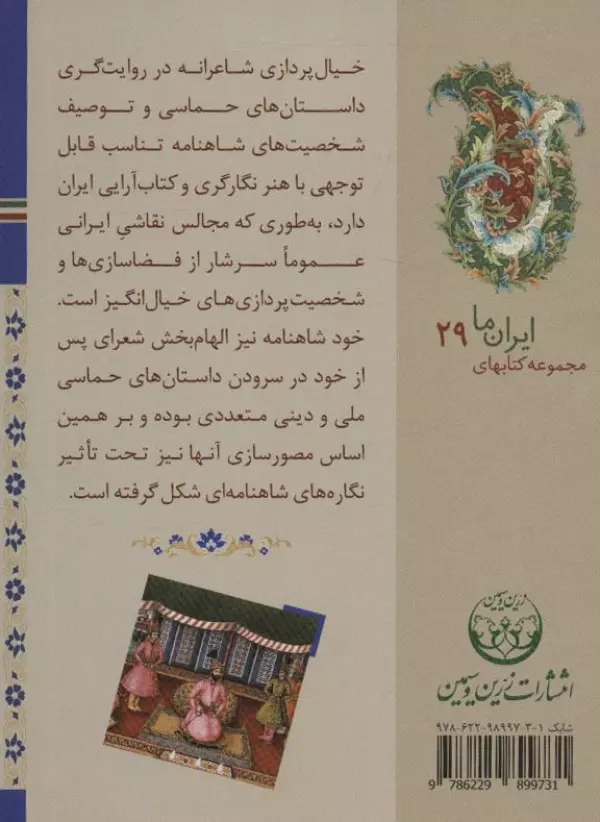 خیال‌پردازی شاعرانه در روایت‌گری
داستان‌های حماسی و توصیف
شخصیت‌های شاهنامه تناسب قابل
توجهی با هنر نگارگری و کتاب‌آرایی ایران
دارد، به‌طوری که مجالس نقاشیِ ایرانی
عموماً سرشار از فضاسازی‌ها و
شخصیت‌پردازی‌های خیال‌انگیز است.
خود شاهنامه نیز الهام‌بخش شعرای پس
از خود در سرودن داستان‌های حماسی
ملی و دینی متعددی بوده و بر همین
اساس مصورسازی آنها نیز تحت تأثیر
نگاره‌های شاهنامه‌ای شکل گرفته است.
ایران ما ۲۹
مجموعه کتابهای
زرین و سیمین
انتشارات زرین و سیمین
شابک ۱-۳-۹۸۹۹۷-۶۲۲-۹۷۸
9 786229 899731